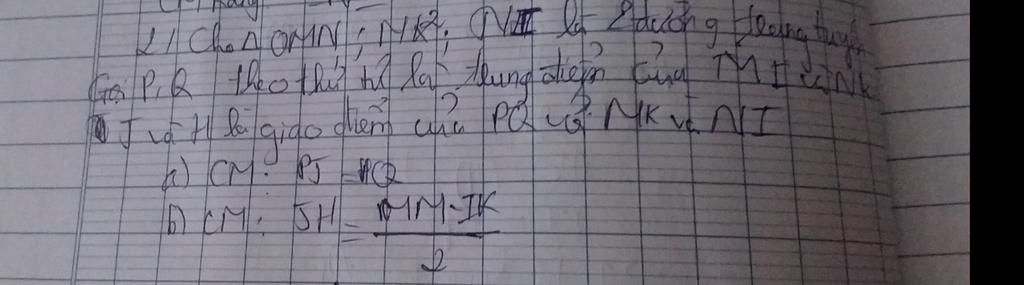 2/ Cho Δ OMN; MK; NI là 2 đường trung tuyến
Gọi P, Q theo thứ tự là trung điểm của MI và NK
J và H là giao điểm của PQ với MK và NI
a) CM: PJ = HQ
b) CM: JH = MN - IK
2